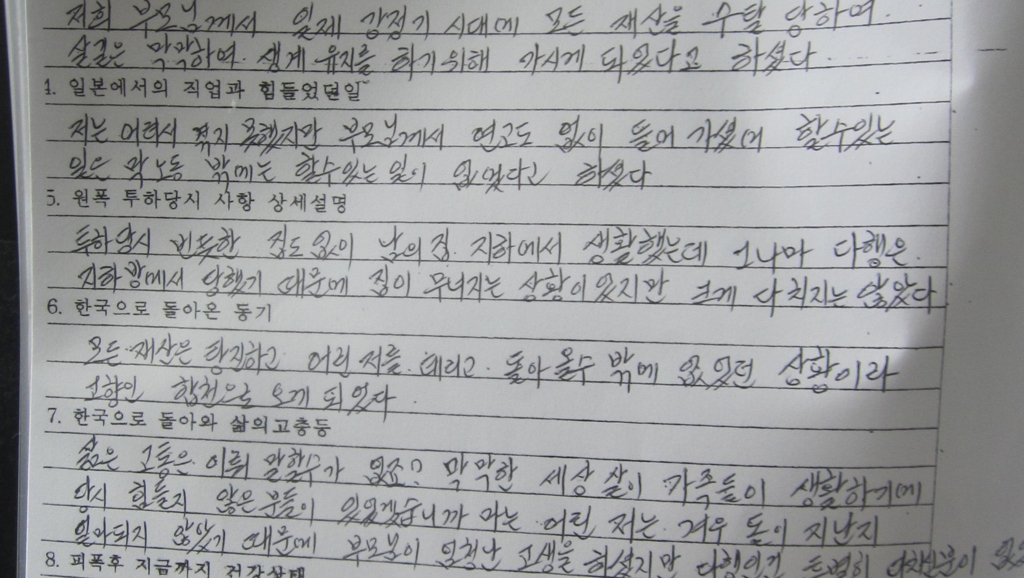 저희 부모님께서 일제 강점기 시대에 모든 재산을 수탈 당하여.
살길은 막막하여. 생계 유지를 하기위해 가시게 되었다고 하셨다.
1. 일본에서의 직업과 힘들었던일
저는 어려서 겪지 못했지만 부모님께서 연고도 없이 들어 가셨기에 할수있는
일은 막노동 밖에는 할수있는 일이 없었다고 하셨다
5. 원폭 투하당시 사항 상세설명
투하당시 반듯한 집도 없이 남의집 지하에서 생활했는데 그나마 다행은.
지하방에서 당했기 때문에 집이 무너지는 상황이있지만 크게 다치지는 않았다
6. 한국으로 돌아온 동기
모든 재산은 탕진하고 어린 저를 데리고 돌아 올수 밖에 없었던 상황이라
고향인 합천으로 오게 되었다.
7. 한국으로 돌아와 삶의고충등
삶은 고통은 이뤄 말할수가 없죠? 막막한 세상 살이 가족들이 생활하기에
당시 힘들지 않은 분들이 있었겠습니까 마는 어린 저는 겨우 돌이 지난지
얼마되지 않았기 때문에 부모님이 엄청난 고생을 하셨지만 다행인건
8. 피폭후 지금까지 건강상태